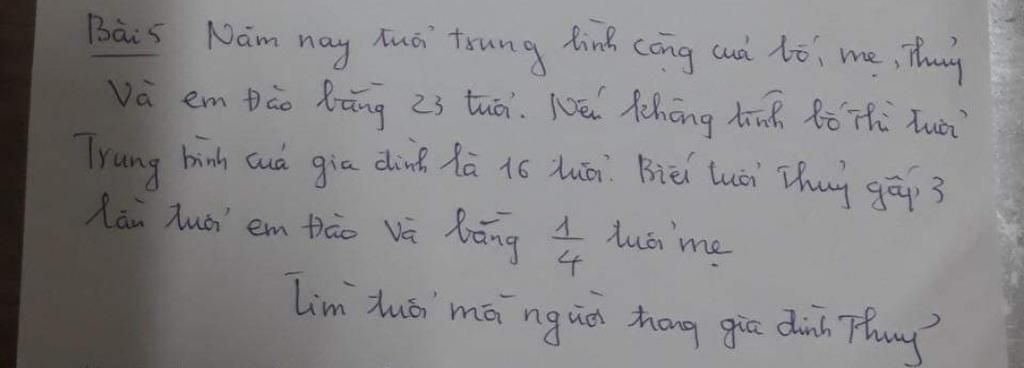 Bài 5 Năm nay tuổi trung bình cộng của bố, mẹ, Thuỷ
Và em Đào bằng 23 tuổi. Nếu không tính bố thì tuổi
Trung bình của gia đình là 16 tuổi. Biết tuổi Thuỷ gấp 3
lần tuổi em Đào và bằng 1/4 tuổi mẹ
Tìm tuổi mỗi người trong gia đình Thuỷ